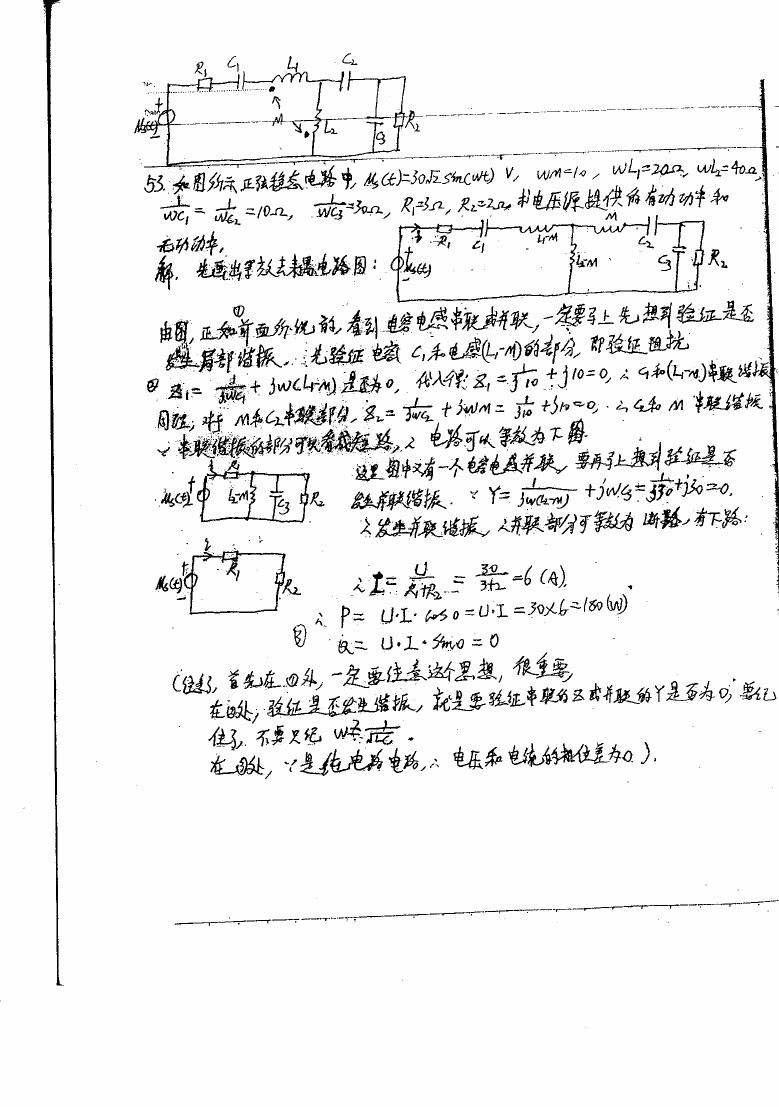 R₁ C₁ L₁ C₂
M
+ us(t) - L₂ C₃ R₂
53. 如图所示正弦稳态电路中, us(t)=30√2 sin(wt) V, wM=10, wL₁=20Ω, wL₂=40Ω,
1/wC₁ = 1/wC₂ =10Ω, 1/wC₃=30Ω, R₁=3Ω, R₂=2Ω, 求电压源提供的有功功率和
无功功率.
R₁ C₁ L₁-M M C₂
解. 先画出等效去耦电路图: + us(t) - L₂-M C₃ R₂
①
由图, 正如前面所说的, 看到电容电感串联或并联, 一定要马上先想到验证是否
发生局部谐振. 先验证电容 C₁和电感(L₁-M)的部分, 即验证阻抗
② Z₁= 1/jwC₁ + jw(L₁-M) 是否为0, 代入得: Z₁= 1/j10 + j10=0, ∴ C₁和(L₁-M)串联谐振
同理, 对于 M和C₂串联部分, Z₂= 1/jwC₂ + jwM = 1/j10 + j10=0, ∴ C₂和 M 串联谐振.
∵ 串联谐振的部分可以看成短路, ∴ 电路可以等效为下图.
i R₁ 这里图中又有一个电容电感并联, 要再马上想到验证是否
us(t) + - L₂-M C₃ R₂ 发生并联谐振. ∵ Y= 1/jw(L₂-M) + jwC₃= 1/j30 + j/30 =0.
∴ 发生并联谐振, ∴ 并联部分可等效为 断路, 有下路:
i R₁
us(t) + - R₂ ∴ I= U/(R₁+R₂) = 30/(3+2) =6 (A).
∴ P= U·I·cos0=U·I=30×6=180(W)
③ Q= U·I·sin0=0
(注意, 首先在①处, 一定要注意这个思想, 很重要,
在②处, 验证是否发生谐振, 就是要验证串联的Z或并联的Y是否为0, 要记
住了, 不要只记 w=1/√LC .
在③处, ∵是纯电路电路, ∴ 电压和电流的相位差为0. ).